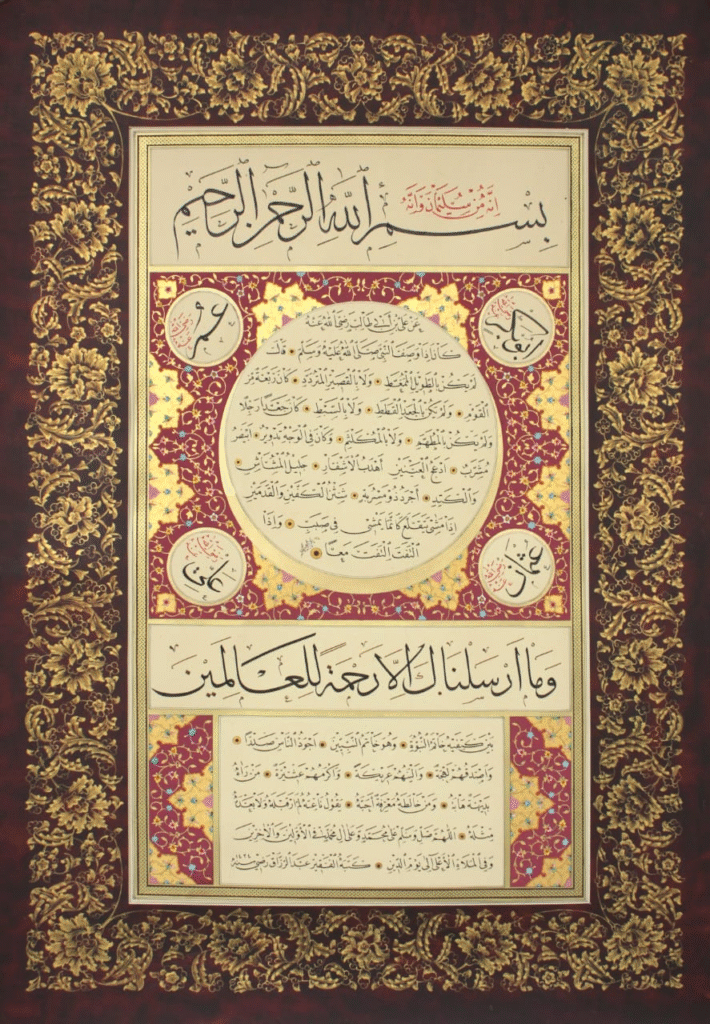 إنه من سليمان وإنه
بسم الله الرحمن الرحيم
أبو بكر
عمر
رضي الله عنه
عن علي بن أبي طالب رضي الله عنه
كان إذا وصف النبي صلى الله عليه وسلم • قال
لم يكن بالطويل الممغط • ولا بالقصير المتردد • كان ربعة من
القوم • ولم يكن بالجعد القطط • ولا بالسبط • كان جعدا رجلا
ولم يكن بالمطهم • ولا بالمكلثم • وكان في الوجه تدوير • أبيض
مشرب • أدعج العينين أهدب الأشفار • جليل المشاش
والكتد • أجرد ذو مسربة • شثن الكفين والقدمين
إذا مشى يتقلع كأنما يمشي في صبب • وإذا
التفت التفت معا •
عثمان
رضي الله عنه
علي
وما أرسلناك إلا رحمة للعالمين
بين كتفيه خاتم النبوة • وهو خاتم النبيين • أجود الناس صدرا •
وأصدقهم لهجة • وألينهم عريكة • وأكرمهم عشيرة • من رآه
بديهة هابه • ومن خالطه معرفة أحبه • يقول ناعته لم أر قبله ولا بعده
مثله • اللهم صل وسلم على محمد وعلى آل محمد في الأولين والآخرين
وفي الملاء الأعلى إلى يوم الدين • كتبه الفقير عبد الرزاق